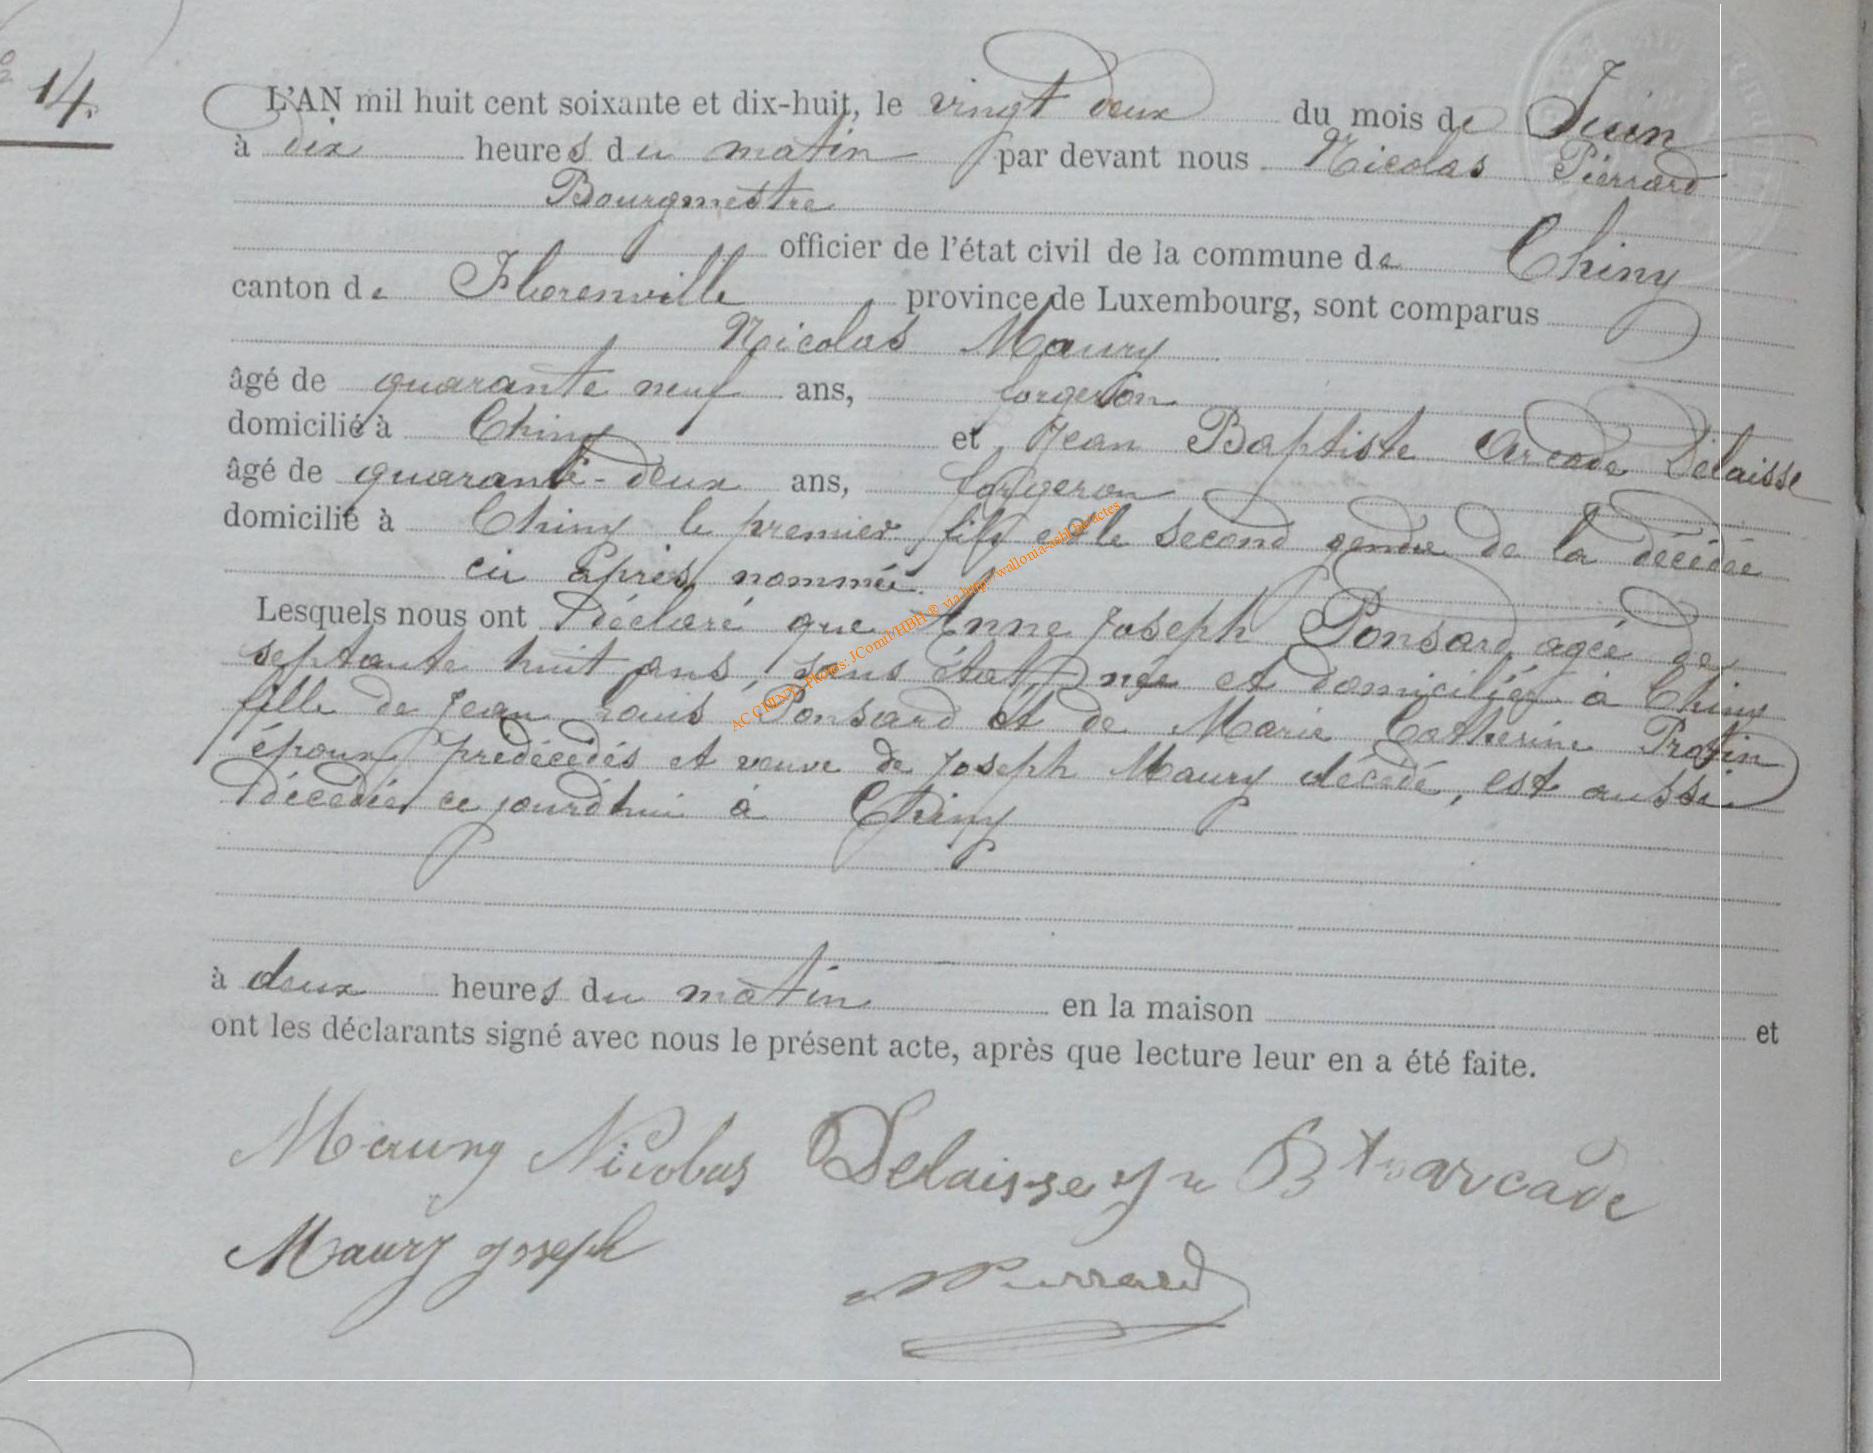 N° 14.
L'AN mil huit cent soixante et dix-huit, le vingt deux du mois de Juin
à dix heures du matin par devant nous Nicolas Pierrard
Bourgmestre
officier de l'état civil de la commune de Chiny
canton de Florenville province de Luxembourg, sont comparus
Nicolas Maury
âgé de quarante neuf ans, forgeron
domicilié à Chiny et Jean Baptiste Arcade Delaisse
âgé de quarante-deux ans, forgeron
domicilié à Chiny le premier fils et le second gendre de la décédée
ci après nommée.
Lesquels nous ont Déclaré que Anne Joseph Ponsard agée de
septante huit ans, sans état, née et domiciliée à Chiny
fille de Jean Louis Ponsard et de Marie Catherine Protin
époux prédécédés et veuve de Joseph Maury décédé, est aussi
décédée ce jourd'hui à Chiny
à deux heures du matin en la maison et
ont les déclarants signé avec nous le présent acte, après que lecture leur en a été faite.
Maury Nicolas Delaisse Jn Bte arcade
Maury joseph
NPierrard
AC CHINY, Photos: JComil/HBH® via http://wallonia-asbl.be/actes